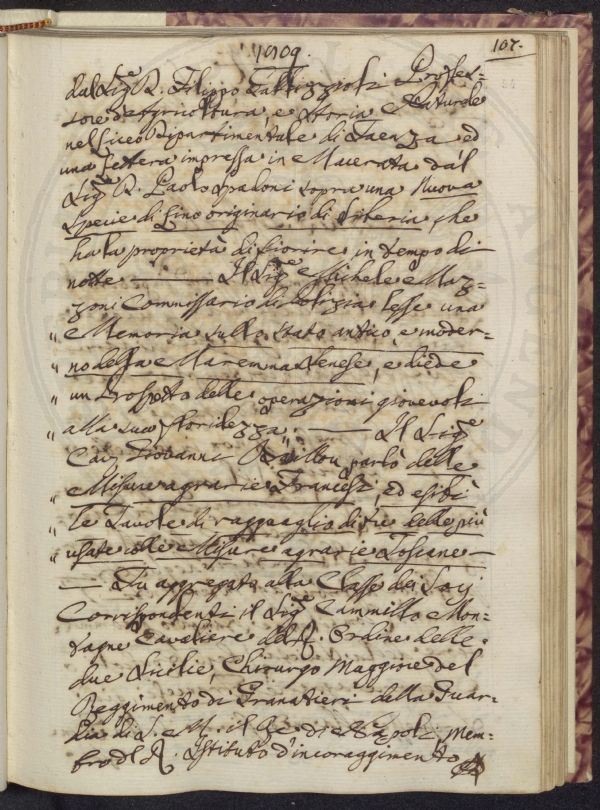 1809.
107.
dal Sig.e D. Filippo Profes-
sore d'agricoltura, e Storia Naturale
nel Liceo Dipartimentale di Faenza ed
una Lettera impressa in Macerata dal
Sig.e D. Paolo Spadoni sopra una Nuova
Specie di Lino originario di Siberia, che
ha la proprietà di fiorire in tempo di
notte — Il Sig.e Michele Maz-
zoni Commissario di Polizia lesse una
" Memoria sullo stato antico, e moder-
" no della Maremma Senese, e diede
" un Prospetto delle operazioni giovevoli
" alla sua floridezza. — Il Sig.e
Cav. Giovanni parlò delle
" Misure agrarie Francesi, ed esibì
" le Tavole di ragguaglio di tre delle più
" usate colle Misure agrarie Toscane —
— Fu aggregato alla Classe dei Socj
Corrispondenti il Sig.e Cammillo Mon-
tagne Cavaliere del R. Ordine delle
due Sicilie, Chirurgo Maggiore del
Reggimento di Granatieri della Guar-
dia di S. M. il Re di Napoli, Mem-
bro del R. Istituto d'incoraggimento